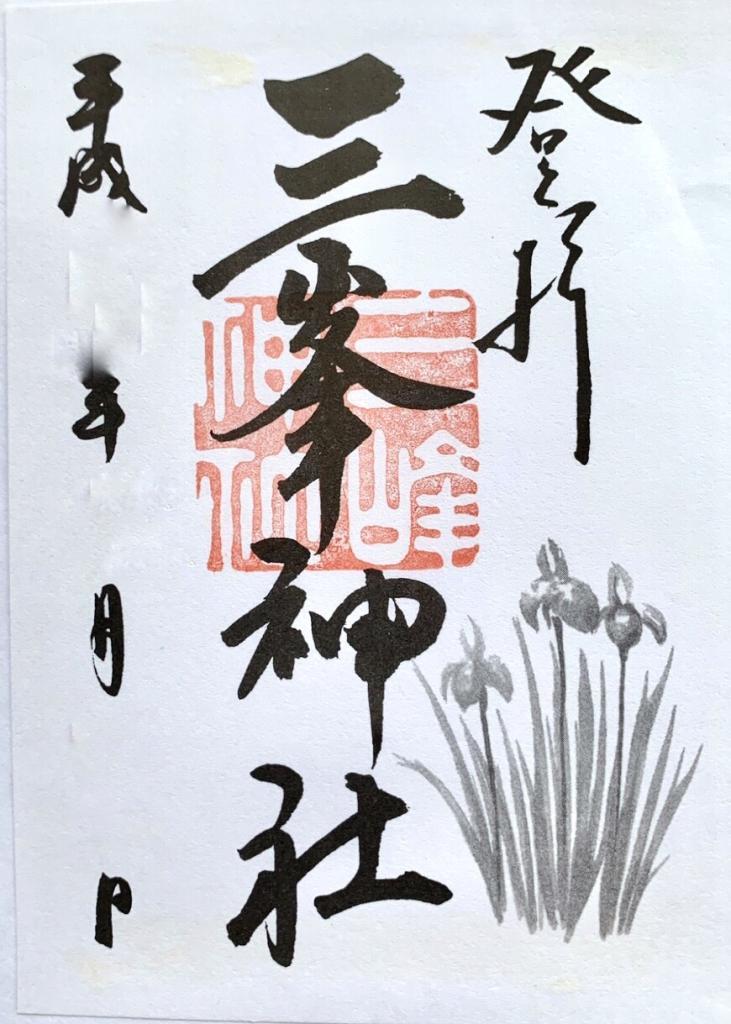 登拝
三峯神社
三峰
神社
平成 年 月 日